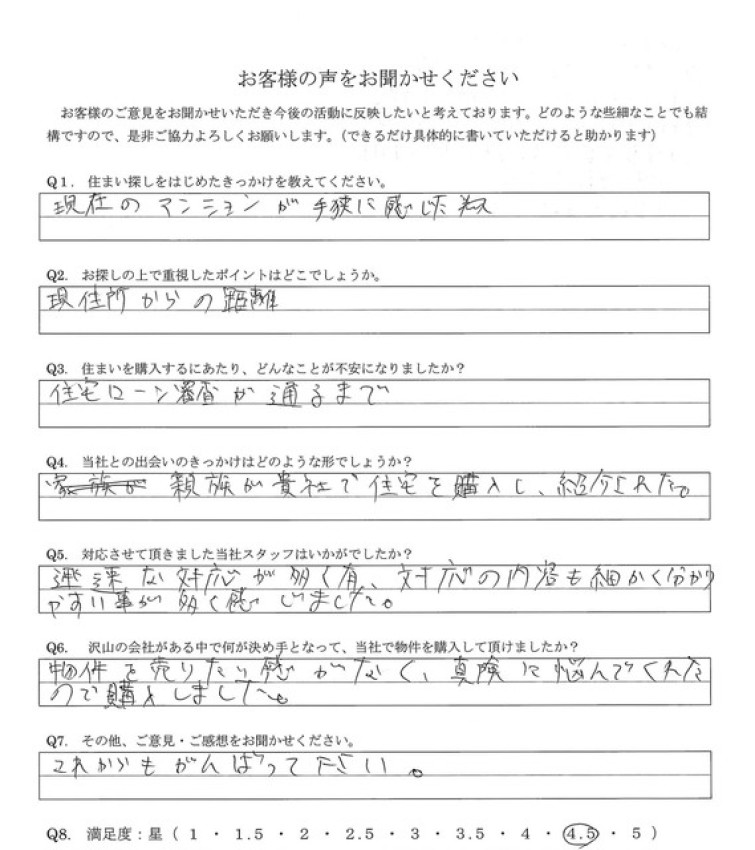 お客様の声をお聞かせください
お客様のご意見をお聞かせいただき今後の活動に反映したいと考えております。どのような些細なことでも結
構ですので、是非ご協力よろしくお願いします。(できるだけ具体的に書いていただけると助かります)
Q1. 住まい探しをはじめたきっかけを教えてください。
現在のマンションが手狭に感じた為
Q2. お探しの上で重視したポイントはどこでしょうか。
現住所からの距離
Q3. 住まいを購入するにあたり、どんなことが不安になりましたか?
住宅ローン審査が通るまで
Q4. 当社との出会いのきっかけはどのような形でしょうか?
家族が 親族が貴社で住宅を購入し、紹介された。
Q5. 対応させて頂きました当社スタッフはいかがでしたか?
迅速な対応が多く有、対応の内容も細かく分かり
やすい事が多く感じました。
Q6. 沢山の会社がある中で何が決め手となって、当社で物件を購入して頂けましたか?
物件を売りたい感がなく、真険に悩んでくれた
ので購入しました。
Q7. その他、ご意見・ご感想をお聞かせください。
これからもがんばって下さい。
Q8. 満足度:星( 1 ・ 1.5 ・ 2 ・ 2.5 ・ 3 ・ 3.5 ・ 4 ・ 4.5 ・ 5 )